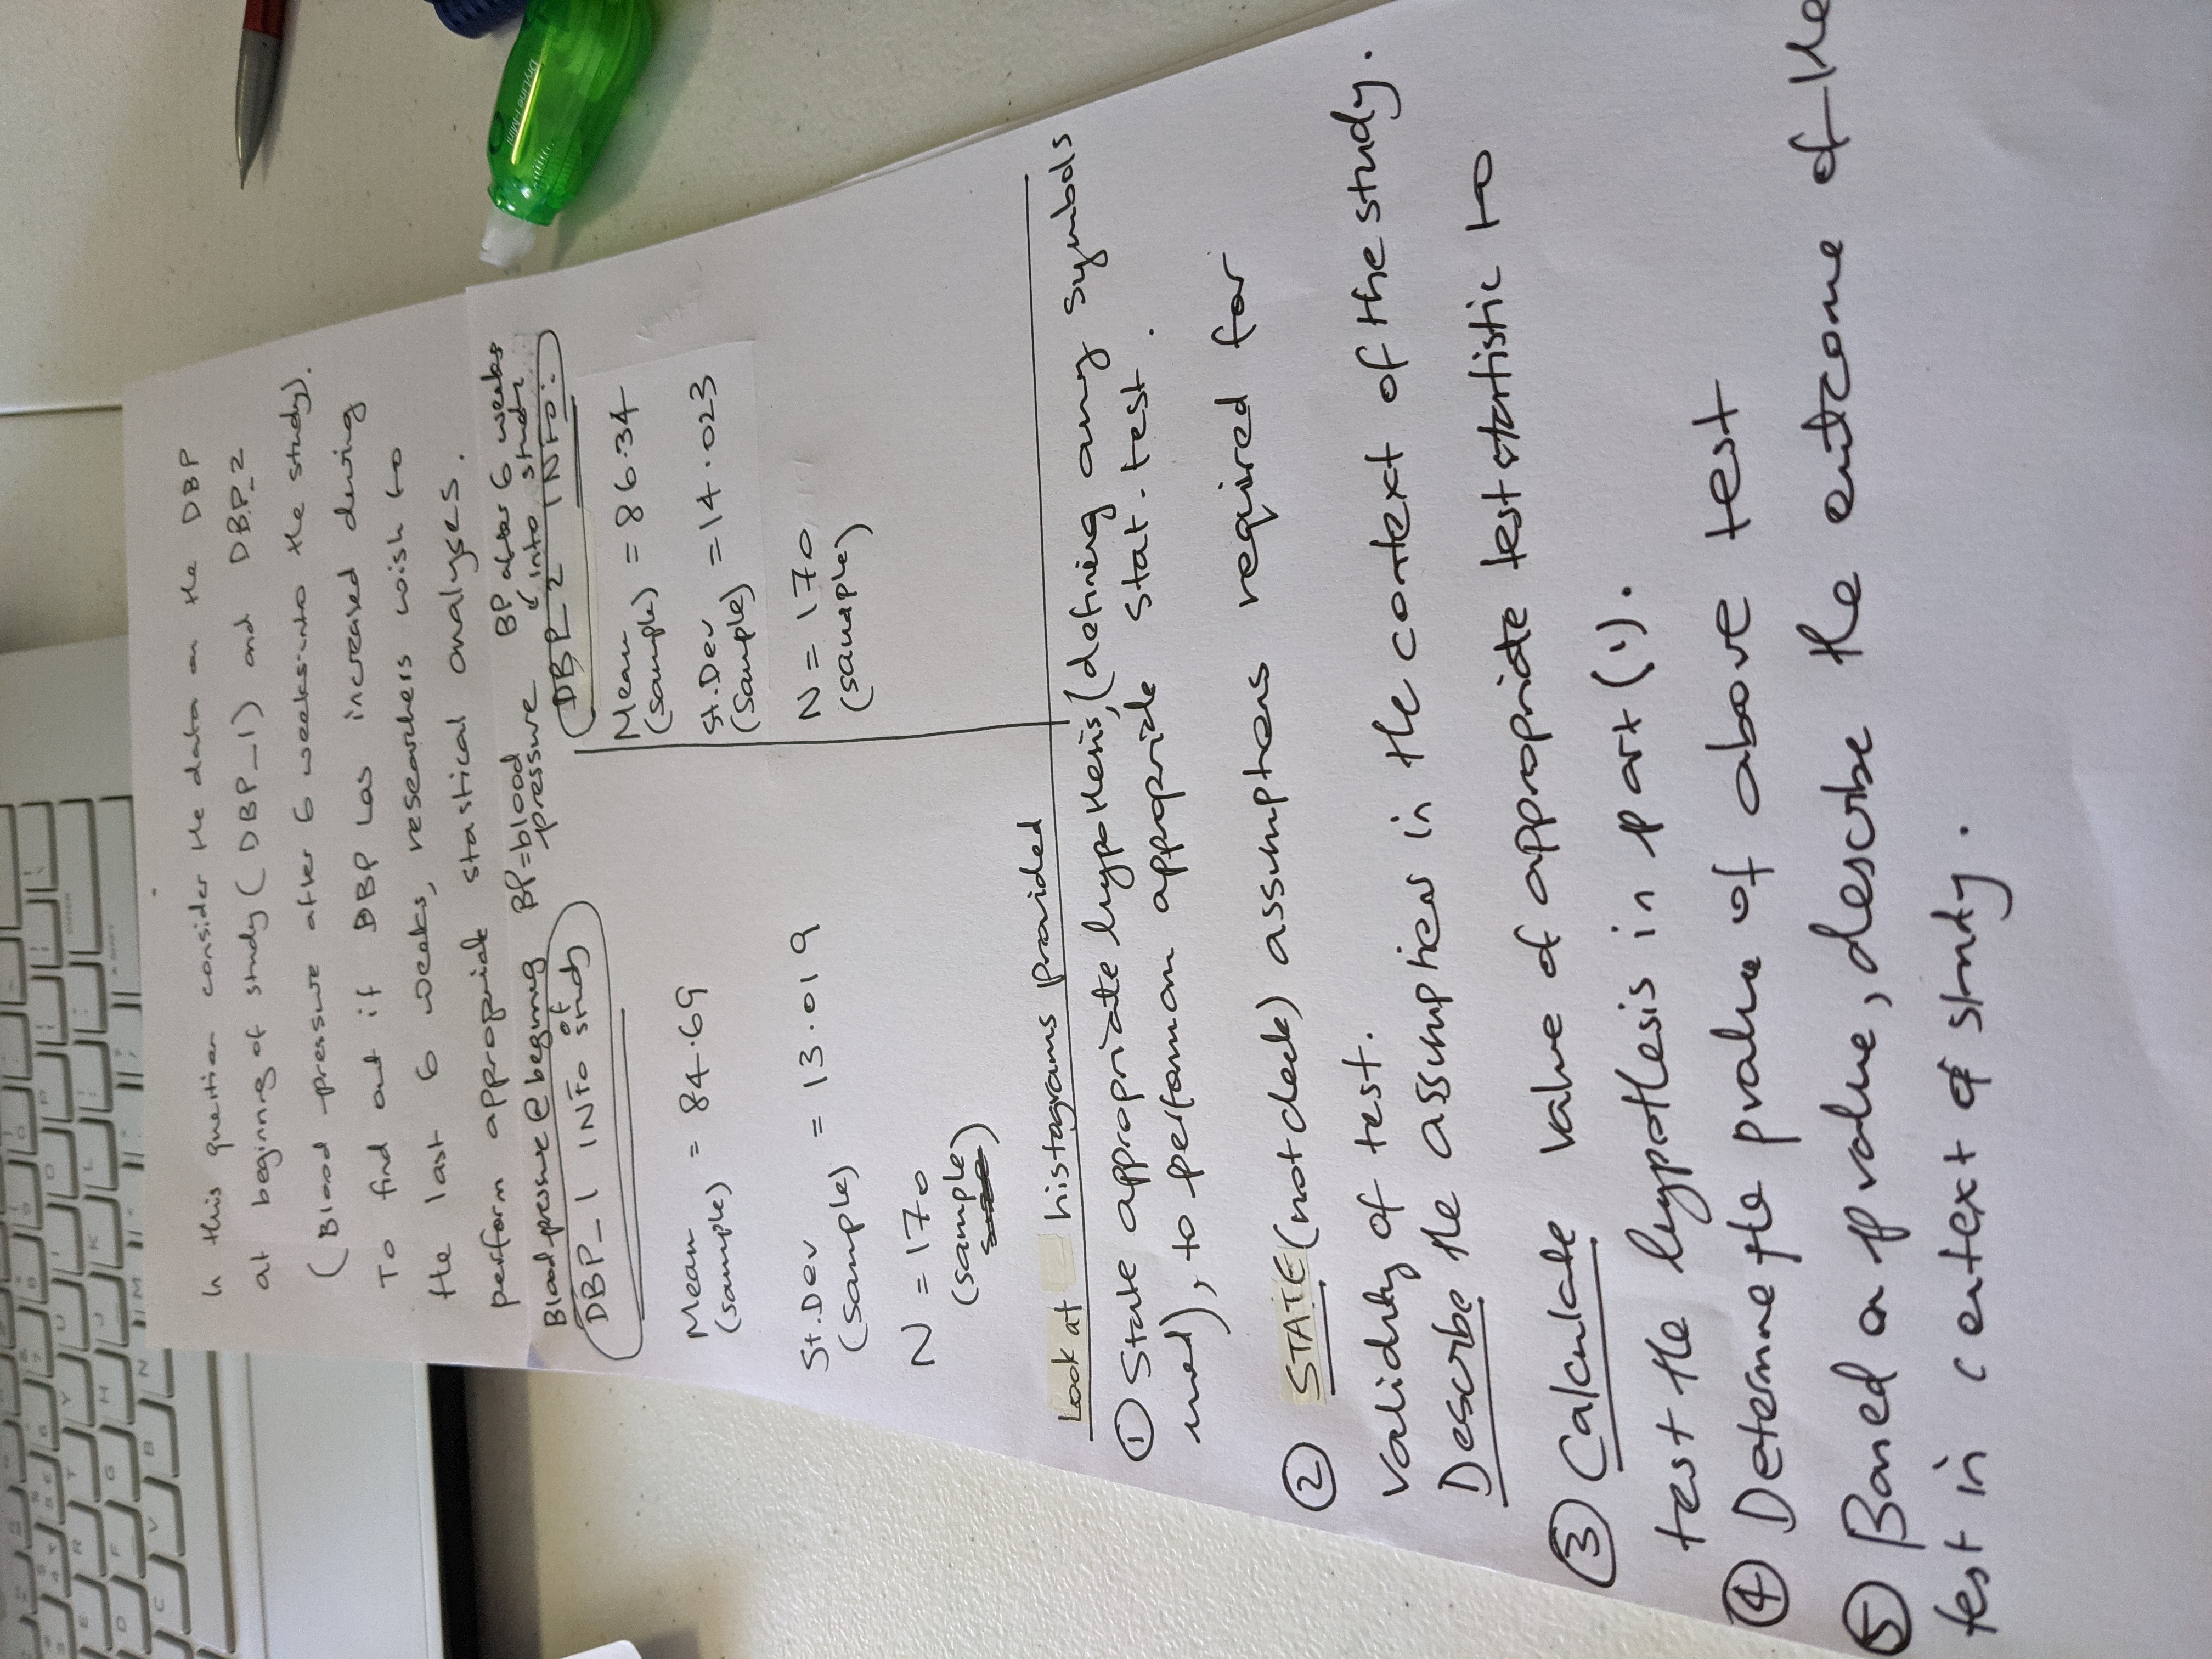 In this question consider the data on the DBP
at beginning of study (DBP_1) and DBP_2
(Blood pressure after 6 weeks into the study).
To find out if DBP has increased during
the last 6 weeks, researchers wish to
perform appropriate stastical analyses.
Blood pressure @ begining of study
BP = blood pressure
BP after 6 weeks into study
DBP_1 INFO
Mean (sample) = 84.69
St.Dev (sample) = 13.019
N = 170
(sample)
DBP_2 INFO:
Mean (sample) = 86.34
St.Dev (sample) = 14.023
N = 170
(sample)
Look at histograms provided
① State appropriate hypothesis, (defining any symbols
used), to perform an appropriate stat. test.
② STATE (not check) assumptions required for
validity of test.
Describe the assumptions in the context of the study.
③ Calculate value of appropriate test statistic to
test the hypothesis in part (1).
④ Determine the pvalue of above test
⑤ Based on p value, describe the outcome of the
test in context of study.
DryLine® Mini
ENTER
SHIFT